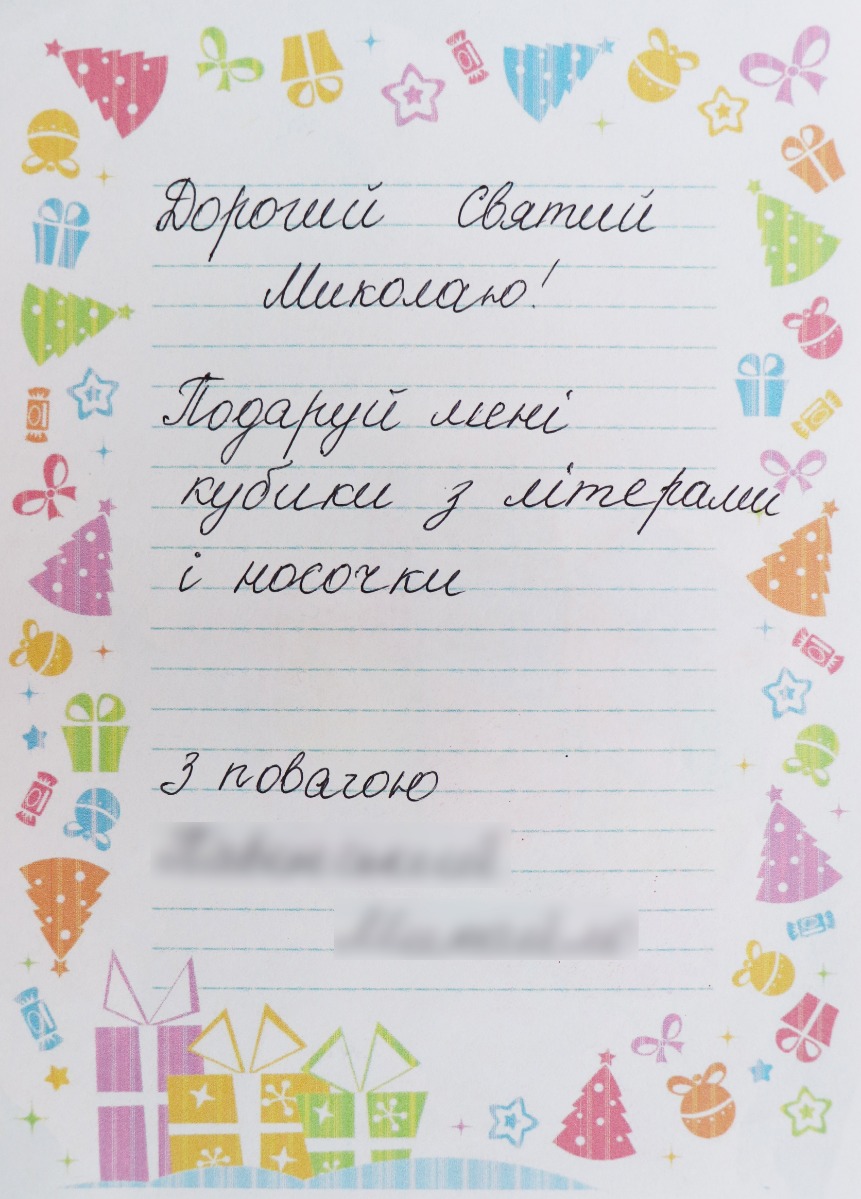 Дорогий Святий
Миколаю!
Подаруй мені
кубики з літерами
і носочки
З повагою